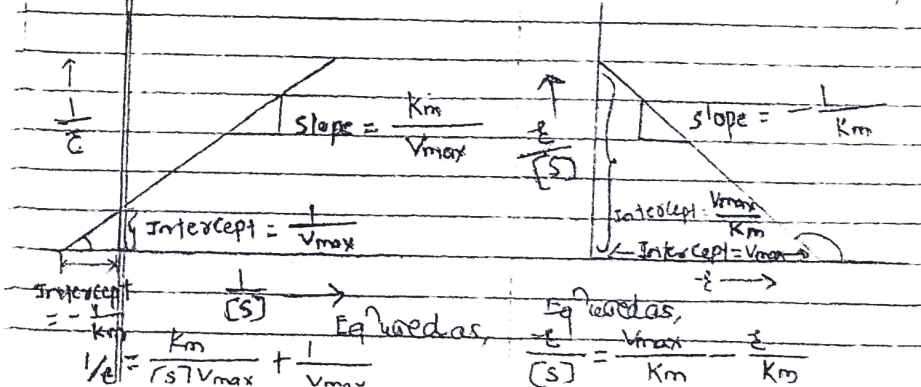 ↑
1/ε
Slope = Km/Vmax
Intercept = 1/Vmax
Intercept = -1/Km
1/[S] →
Eqⁿ used as,
1/ε = Km/[S]Vmax + 1/Vmax
↑
ε/[S]
slope = -1/Km
Intercept = Vmax/Km
← Intercept = Vmax →
ε →
Eqⁿ used as,
ε/[S] = Vmax/Km - ε/Km